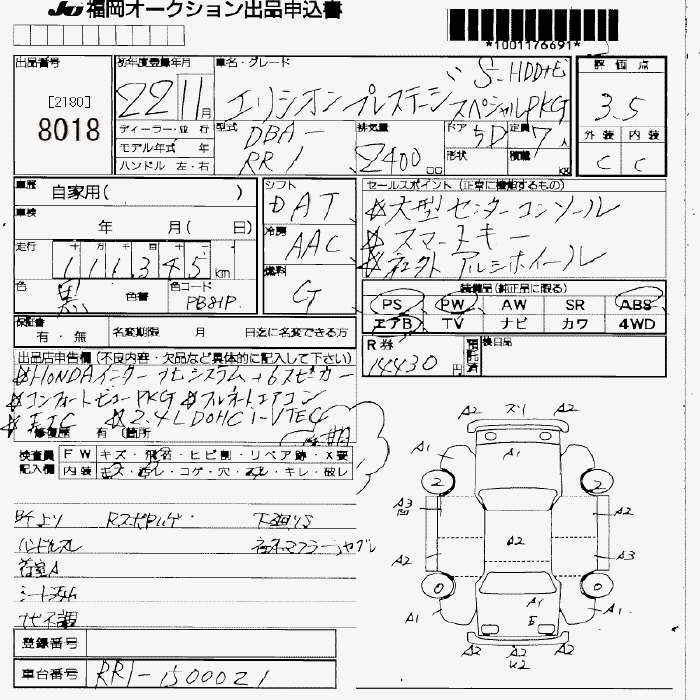 JU福岡オークション出品申込書
*1001176691*
出品番号
[2180]
8018
初年度登録年月
22 11月
ディーラー・並 行
モデル年式 年
ハンドル 左・右
車名・グレード
S-HDDナビ
エリシオン プレステージ スペシャルPKG
型式
DBA-
RR1
排気量
2400 cc
ドア 5D
形状
定員 7人
積載 kg
評価点
3.5
外装 内装
C C
車歴
自家用( )
車検
年 月( 日)
走行
111,345 km
色
黒
色番
色コード
PB81P
シフト
DAT
冷房
AAC
燃料
G
セールスポイント(正常に機能するもの)
☆大型センターコンソール
☆スマートキー
☆ アルミホイール
装備品(純正品に限る)
PS PW AW SR ABS
エアB TV ナビ カワ 4WD
保証書
有・無
名変期限 月 日迄に名変できる方
R券
14430円
預託済
後日品
出品店申告欄(不良内容・欠品など具体的に記入して下さい)
☆HONDAインターナビシステム+6スピーカー
☆コンフォートビューPKG ☆フルオートエアコン
☆ETC ☆2.4L DOHC i-VTEC
修復歴 有 (箇所
検査員記入欄
FW キズ・飛石・ヒビ割・リペア跡・X要
内装 キズ・コゲ・穴・キレ・破レ
ハンドルスレ
下廻りS
荷室A
登録番号
車台番号
RR1-1500021
A2 ス1 A2
A1 A1 A1
2 2
A3 A2
A2 A2 A3
0 0
A1 A1 A1
E
A2 A2
X2